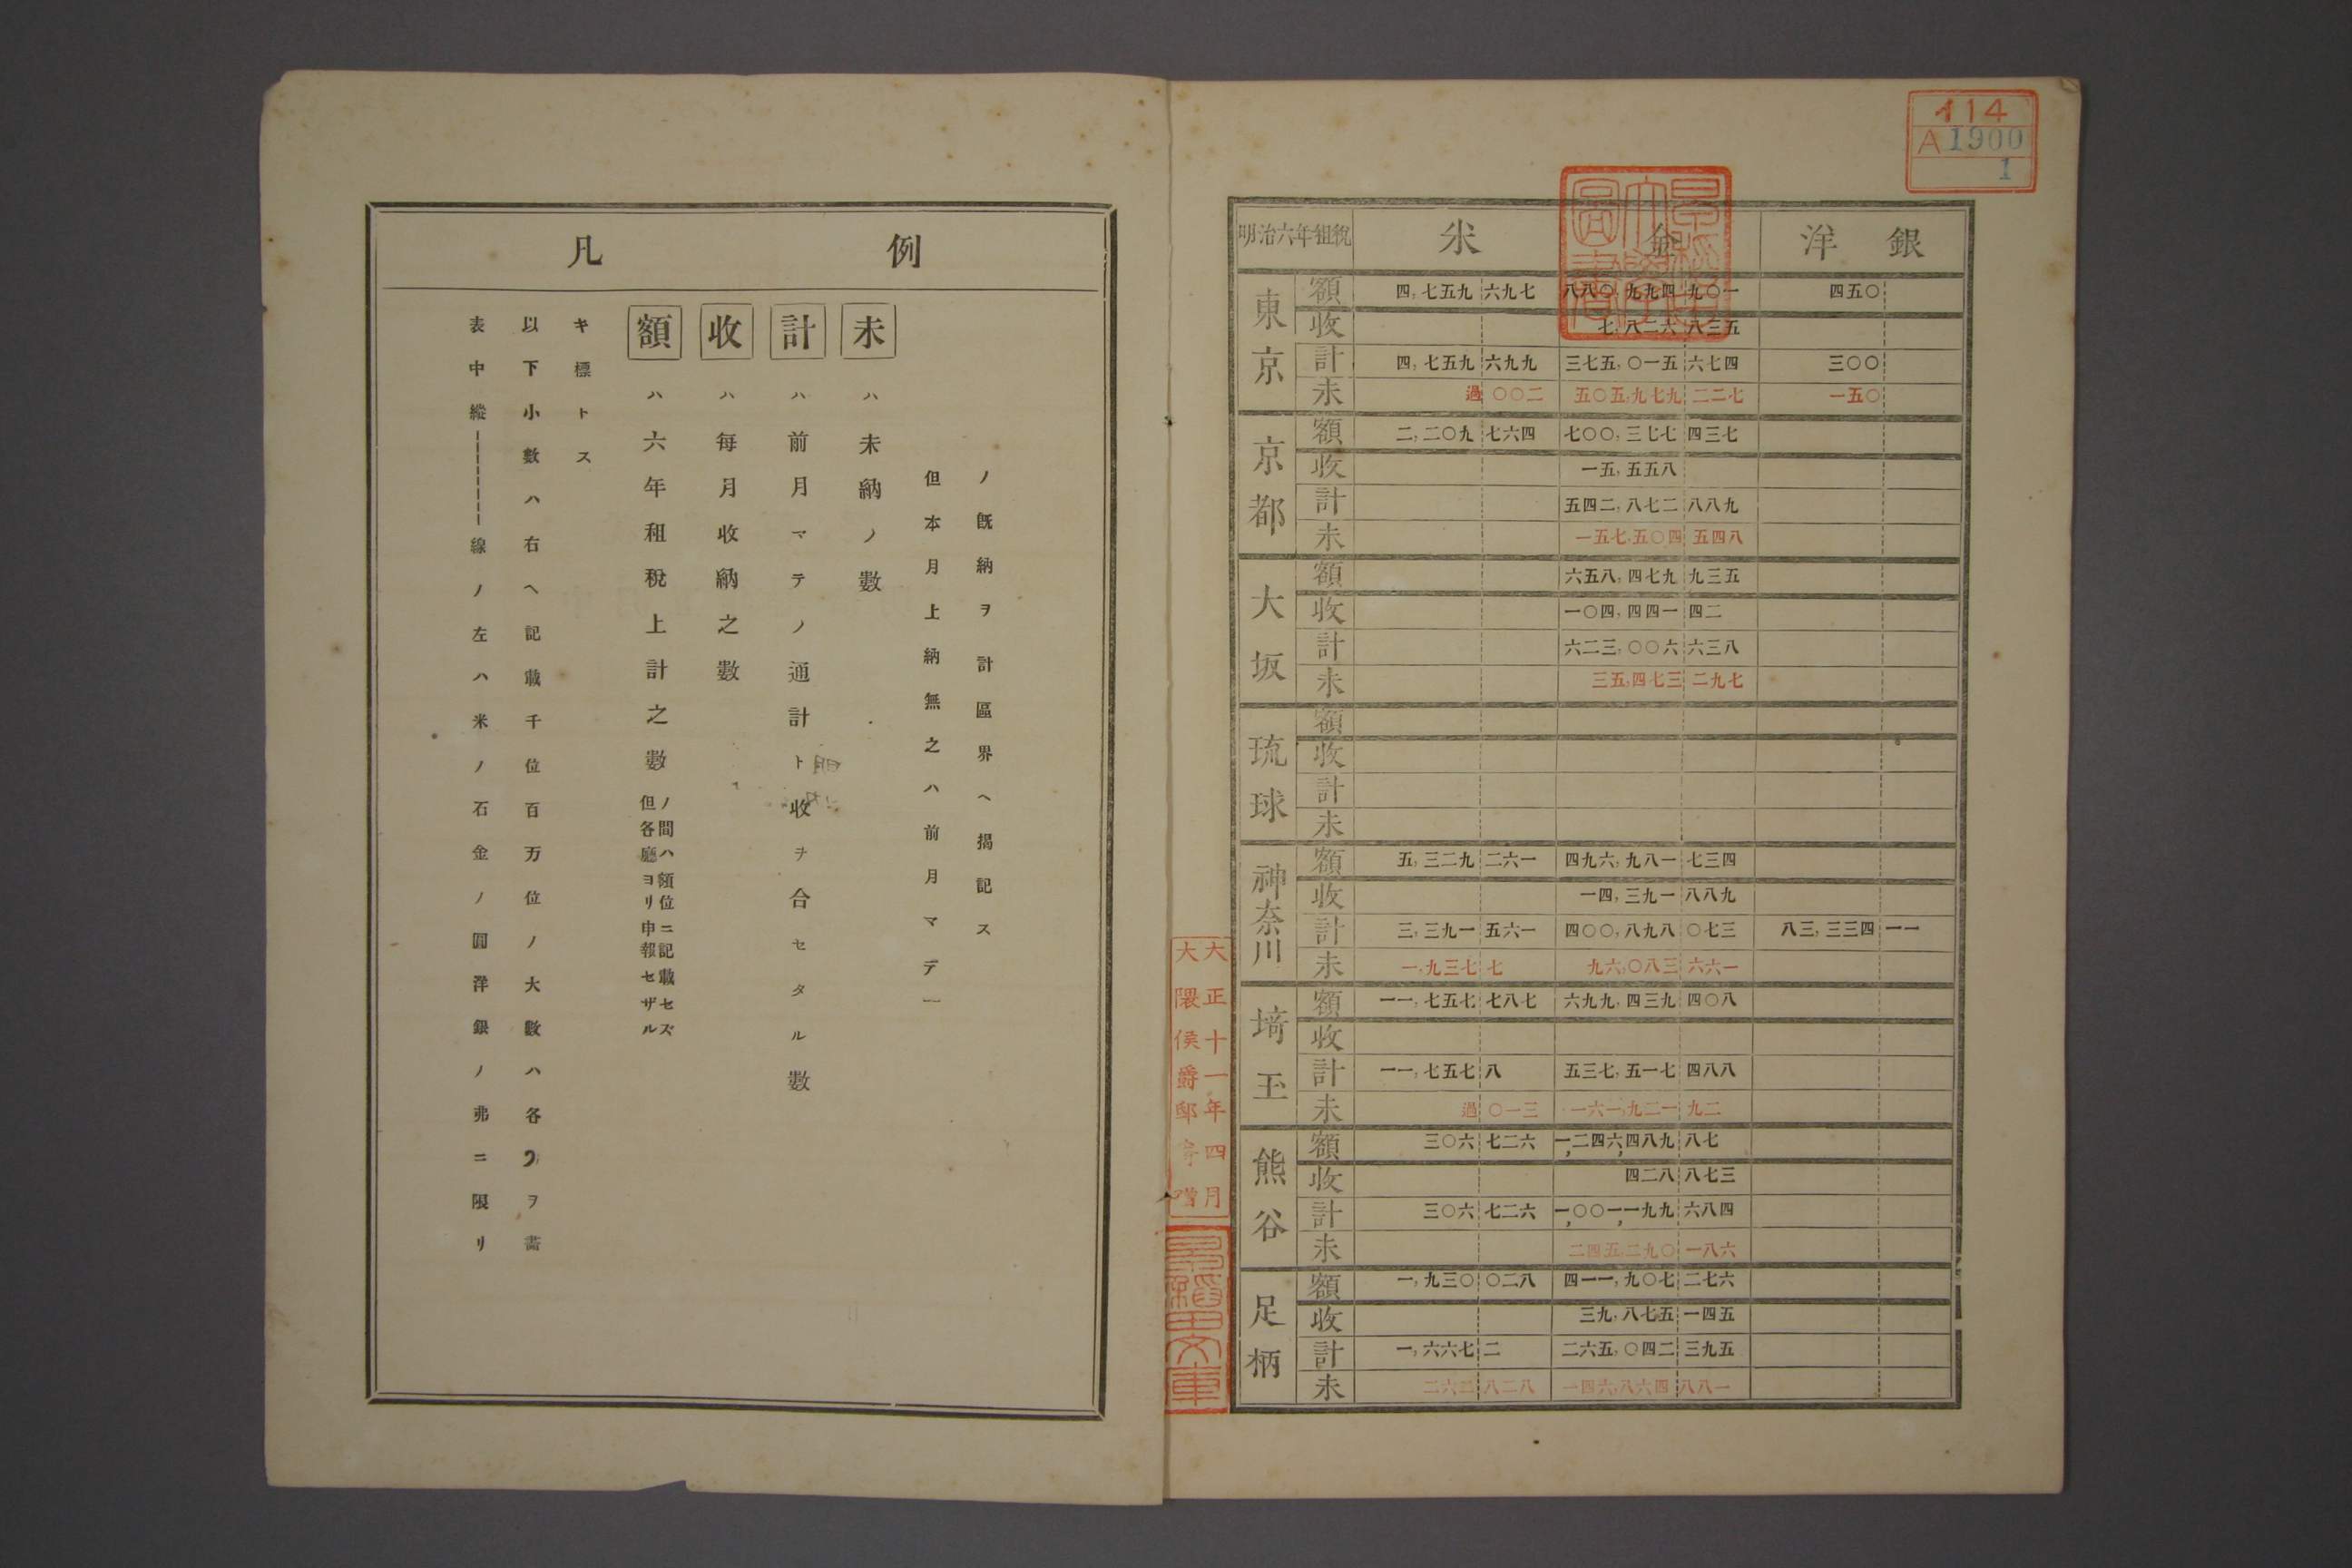 凡例
表中縱線ノ左ハ米ノ石金ノ圓洋銀ノ弗ニ限リ
以下小數ハ右ヘ記載千位百万位ノ大數ハ各ヲ書
キ標トス
額ハ六年租稅上計之數
但各廳ヨリ申報セザル
ノ間ハ額位ニ記載セズ
收ハ每月收納之數
計ハ前月マテノ通計ト收ヲ合セタル數
未ハ未納ノ數
但本月上納無之ハ前月マデ
ノ既納ヲ計區界ヘ揭記ス
114
A 1900
1
明治六年租稅 米 金 洋銀
東京
額 四,七五九 六九七 八八〇,九九四 九〇一 四五〇
收 七,八二六 八三五
計 四,七五九 六九九 三七五,〇一五 六七四 三〇〇
未 過 〇〇二 五〇五,九七九 二二七 一五〇
京都
額 二,二〇九 七六四 七〇〇,三七七 四三七
收 一五,五五八
計 五四二,八七二 八八九
未 一五七,五〇四 五四八
大坂
額 六五八,四七九 九三五
收 一〇四,四四一 四二
計 六二三,〇〇六 六三八
未 三五,四七三 二九七
琉球
額
收
計
未
神奈川
額 五,三二九 二六一 四九六,九八一 七三四
收 一四,三九一 八八九
計 三,三九一 五六一 四〇〇,八九八 〇七三 八三,三三四 一一
未 一,九三七 七 九六,〇八三 六六一
埼玉
額 一一,七五七 七八七 六九九,四三九 四〇八
收
計 一一,七五七 八 五三七,五一七 四八八
未 過 〇一三 一六一,九二一 九二
熊谷
額 三〇六 七二六 一,二四六,四八九 八七
收 四二八 八七三
計 三〇六 七二六 一,〇〇一,一九九 六八四
未 二四五,二九〇 一八六
足柄
額 一,九三〇 〇二八 四一一,九〇七 二七六
收 三九,八七五 一四五
計 一,六六七 二 二六五,〇四二 三九五
未 二六二 八二八 一四六,八六四 八八一
大正十一年四月
大隈侯爵邸寄贈
早稻田文庫
早稻田大學圖書